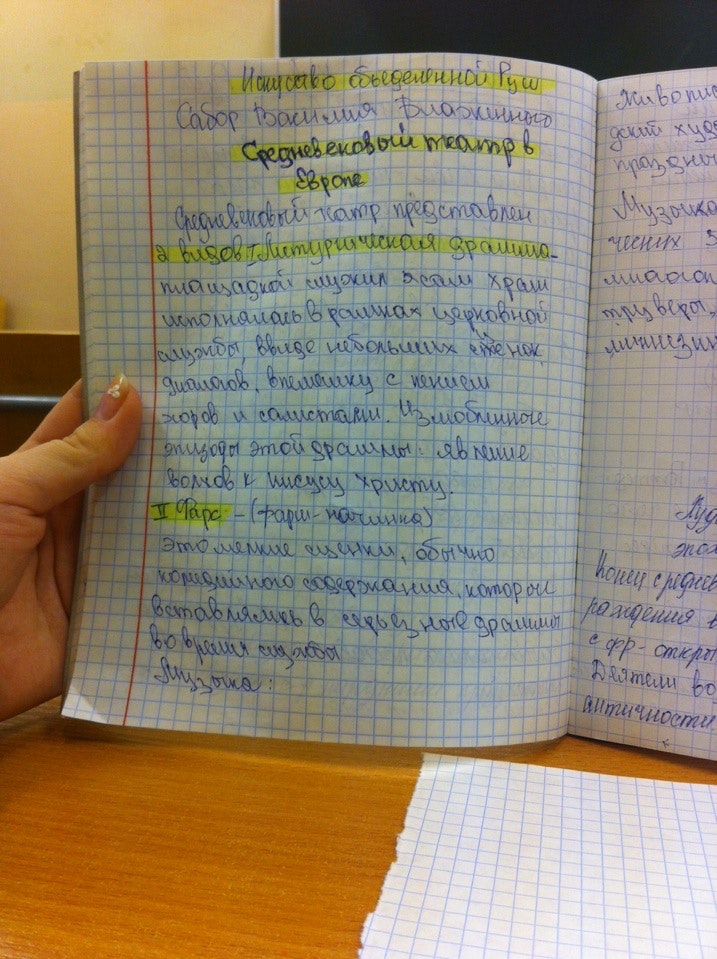 Искуство обьеделённой Руси
Сабор Василия Блаженного
Средневековый театр в
Европе
Средневековый театр представлен
2 видов I Литургическая драмма-
площадкой служил зсам храм
исполнялась в рамках церковной
службы, ввиде небольших сценок,
диалогов, впемешку с пением
хоров и салистами. Излюбленные
эпизоды этой драммы: явление
волхов к Иисусу Христу.
II Фарс - (фарш-начинка)
это мелкие сценки, обычно
комедийного содержания, которые
вставлялись в серьезные драммы
во время службы
Музыка:
Живопис
дский худо
праздни
Музыка
ческих з
многогол
труверы,
миннезин
Худ
эпох
Конец среднев
рождения в
с фр- откры
Деятели во
античности